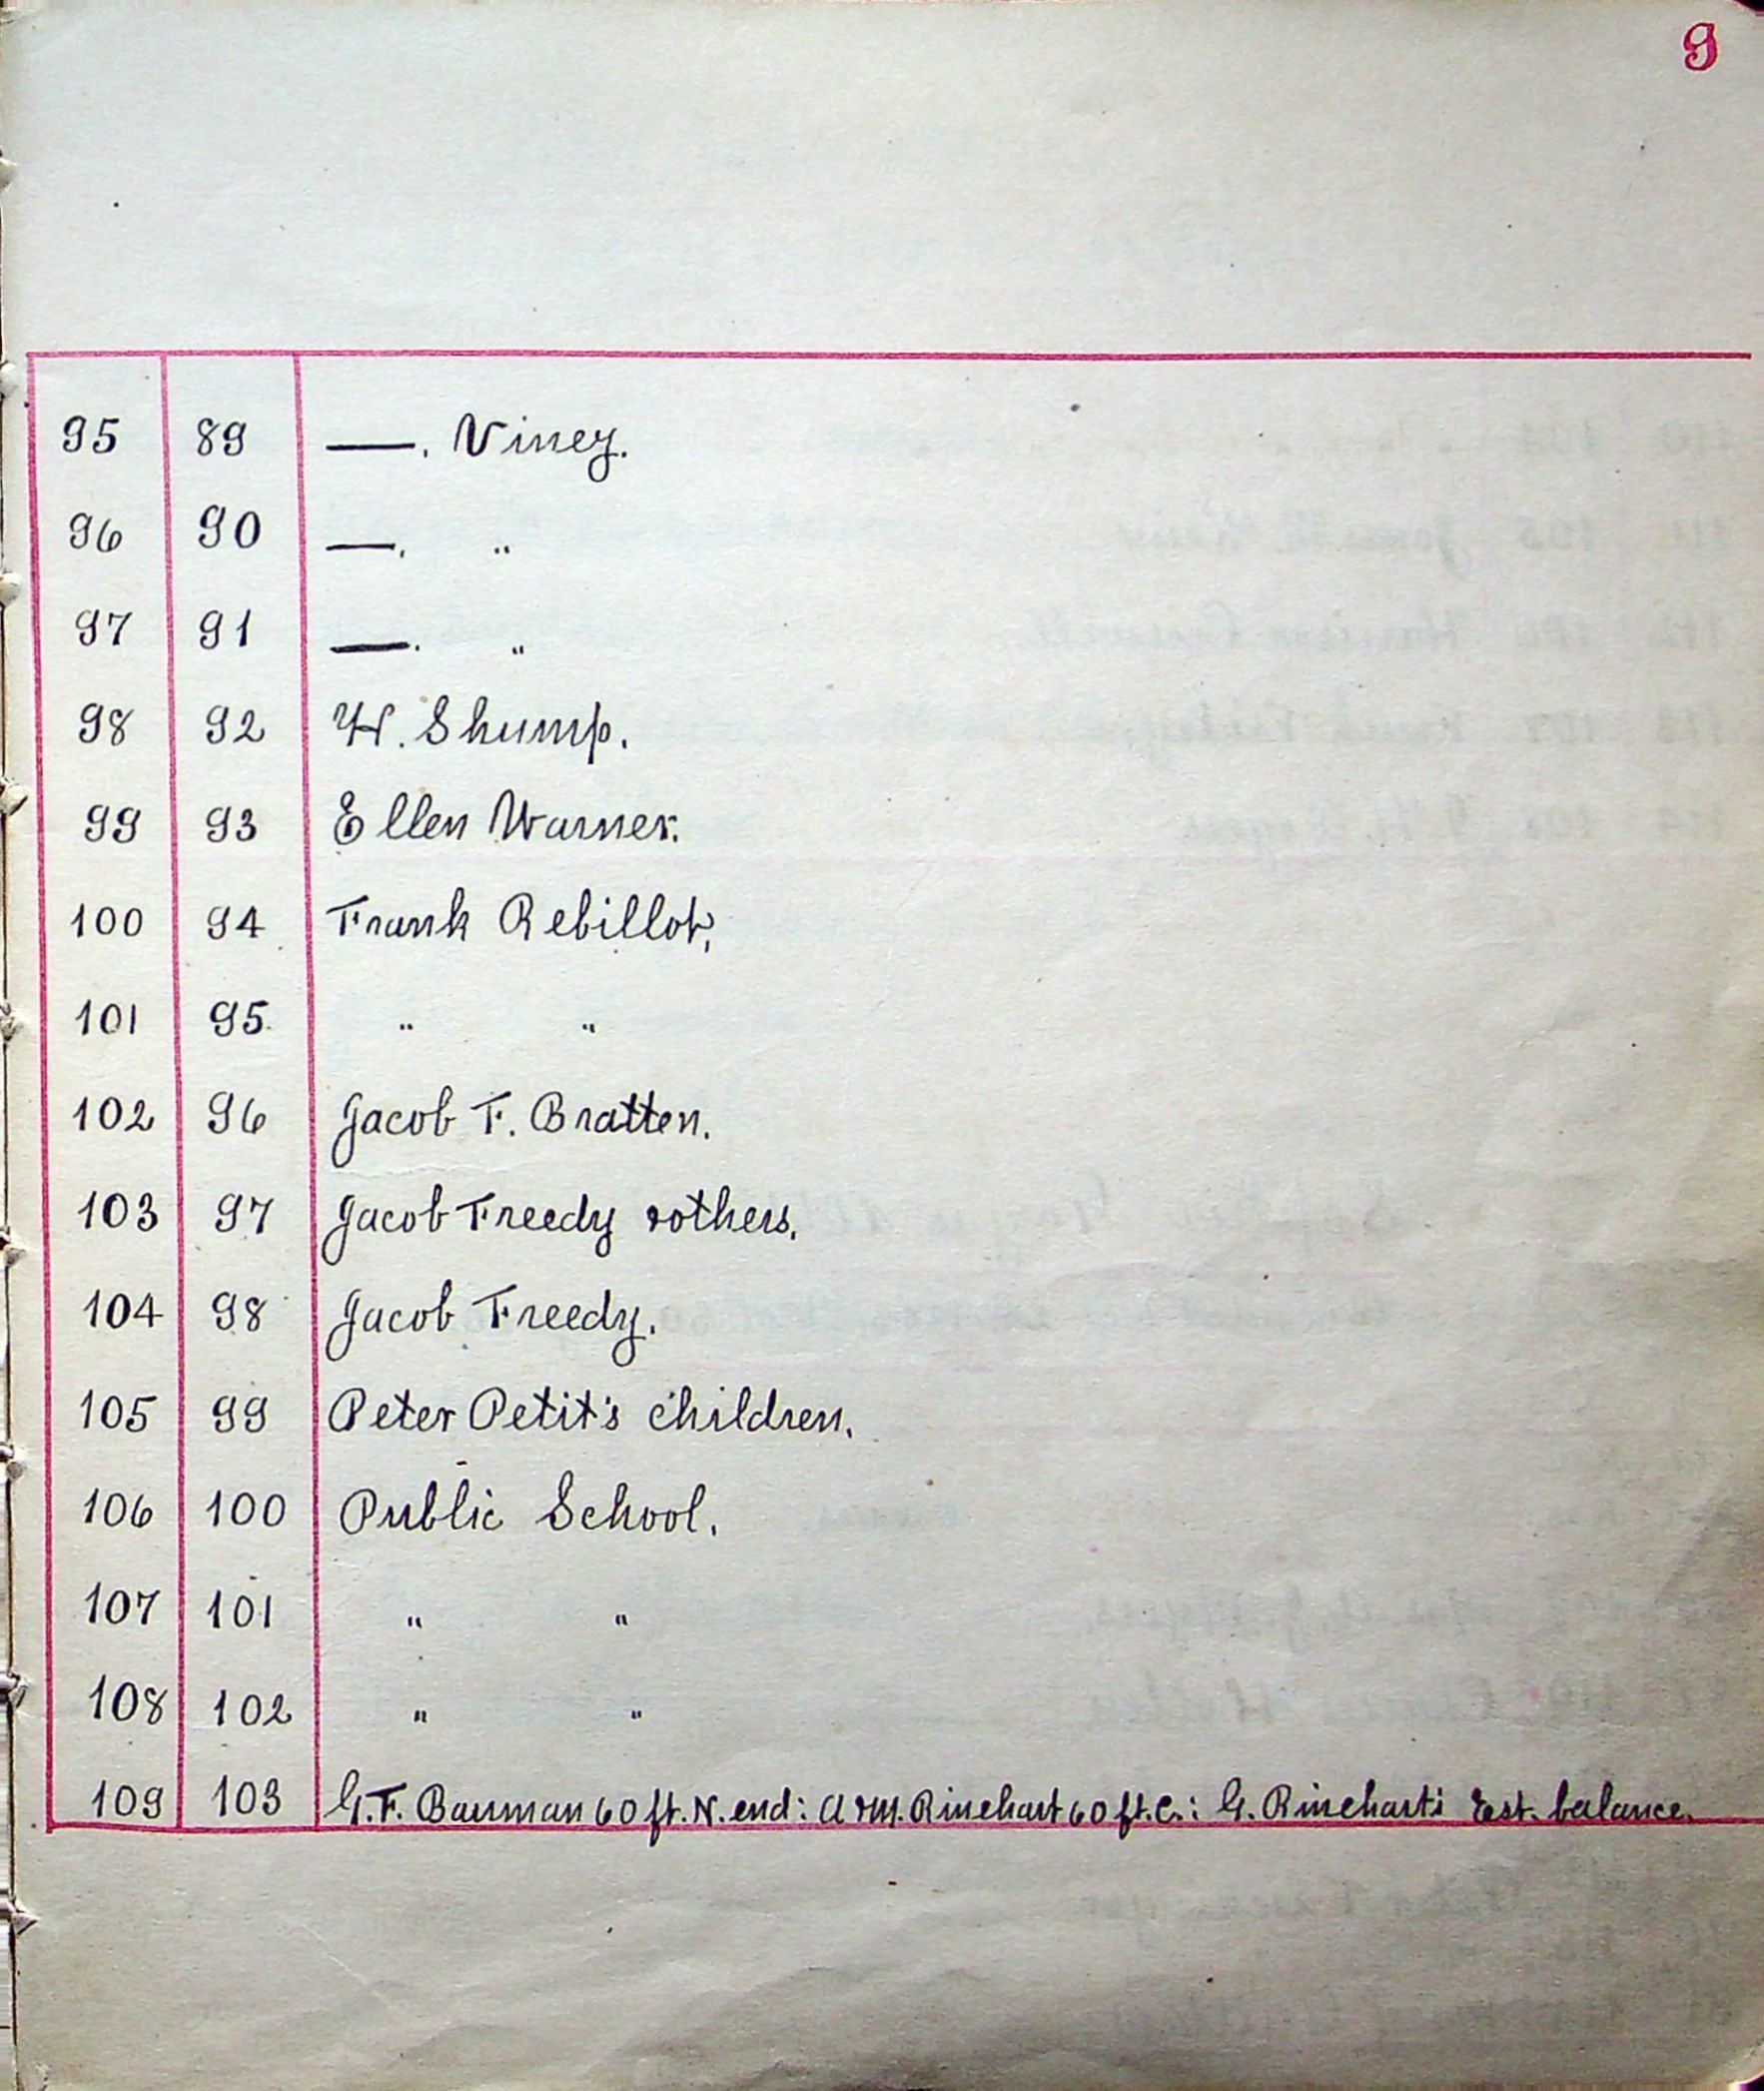 9
95 89 —. Viney.
96 90 —. "
97 91 —. "
98 92 H. Shump.
99 93 Ellen Warner.
100 94 Frank Rebillot,
101 95 " "
102 96 Jacob F. Bratten.
103 97 Jacob Freedy & others.
104 98 Jacob Freedy.
105 99 Peter Petit's children.
106 100 Public School.
107 101 " "
108 102 " "
109 103 G. F. Bauman 60 ft. N. end: A & M. Rinehart 60 ft. C.: G. Rinehart's Est. balance.